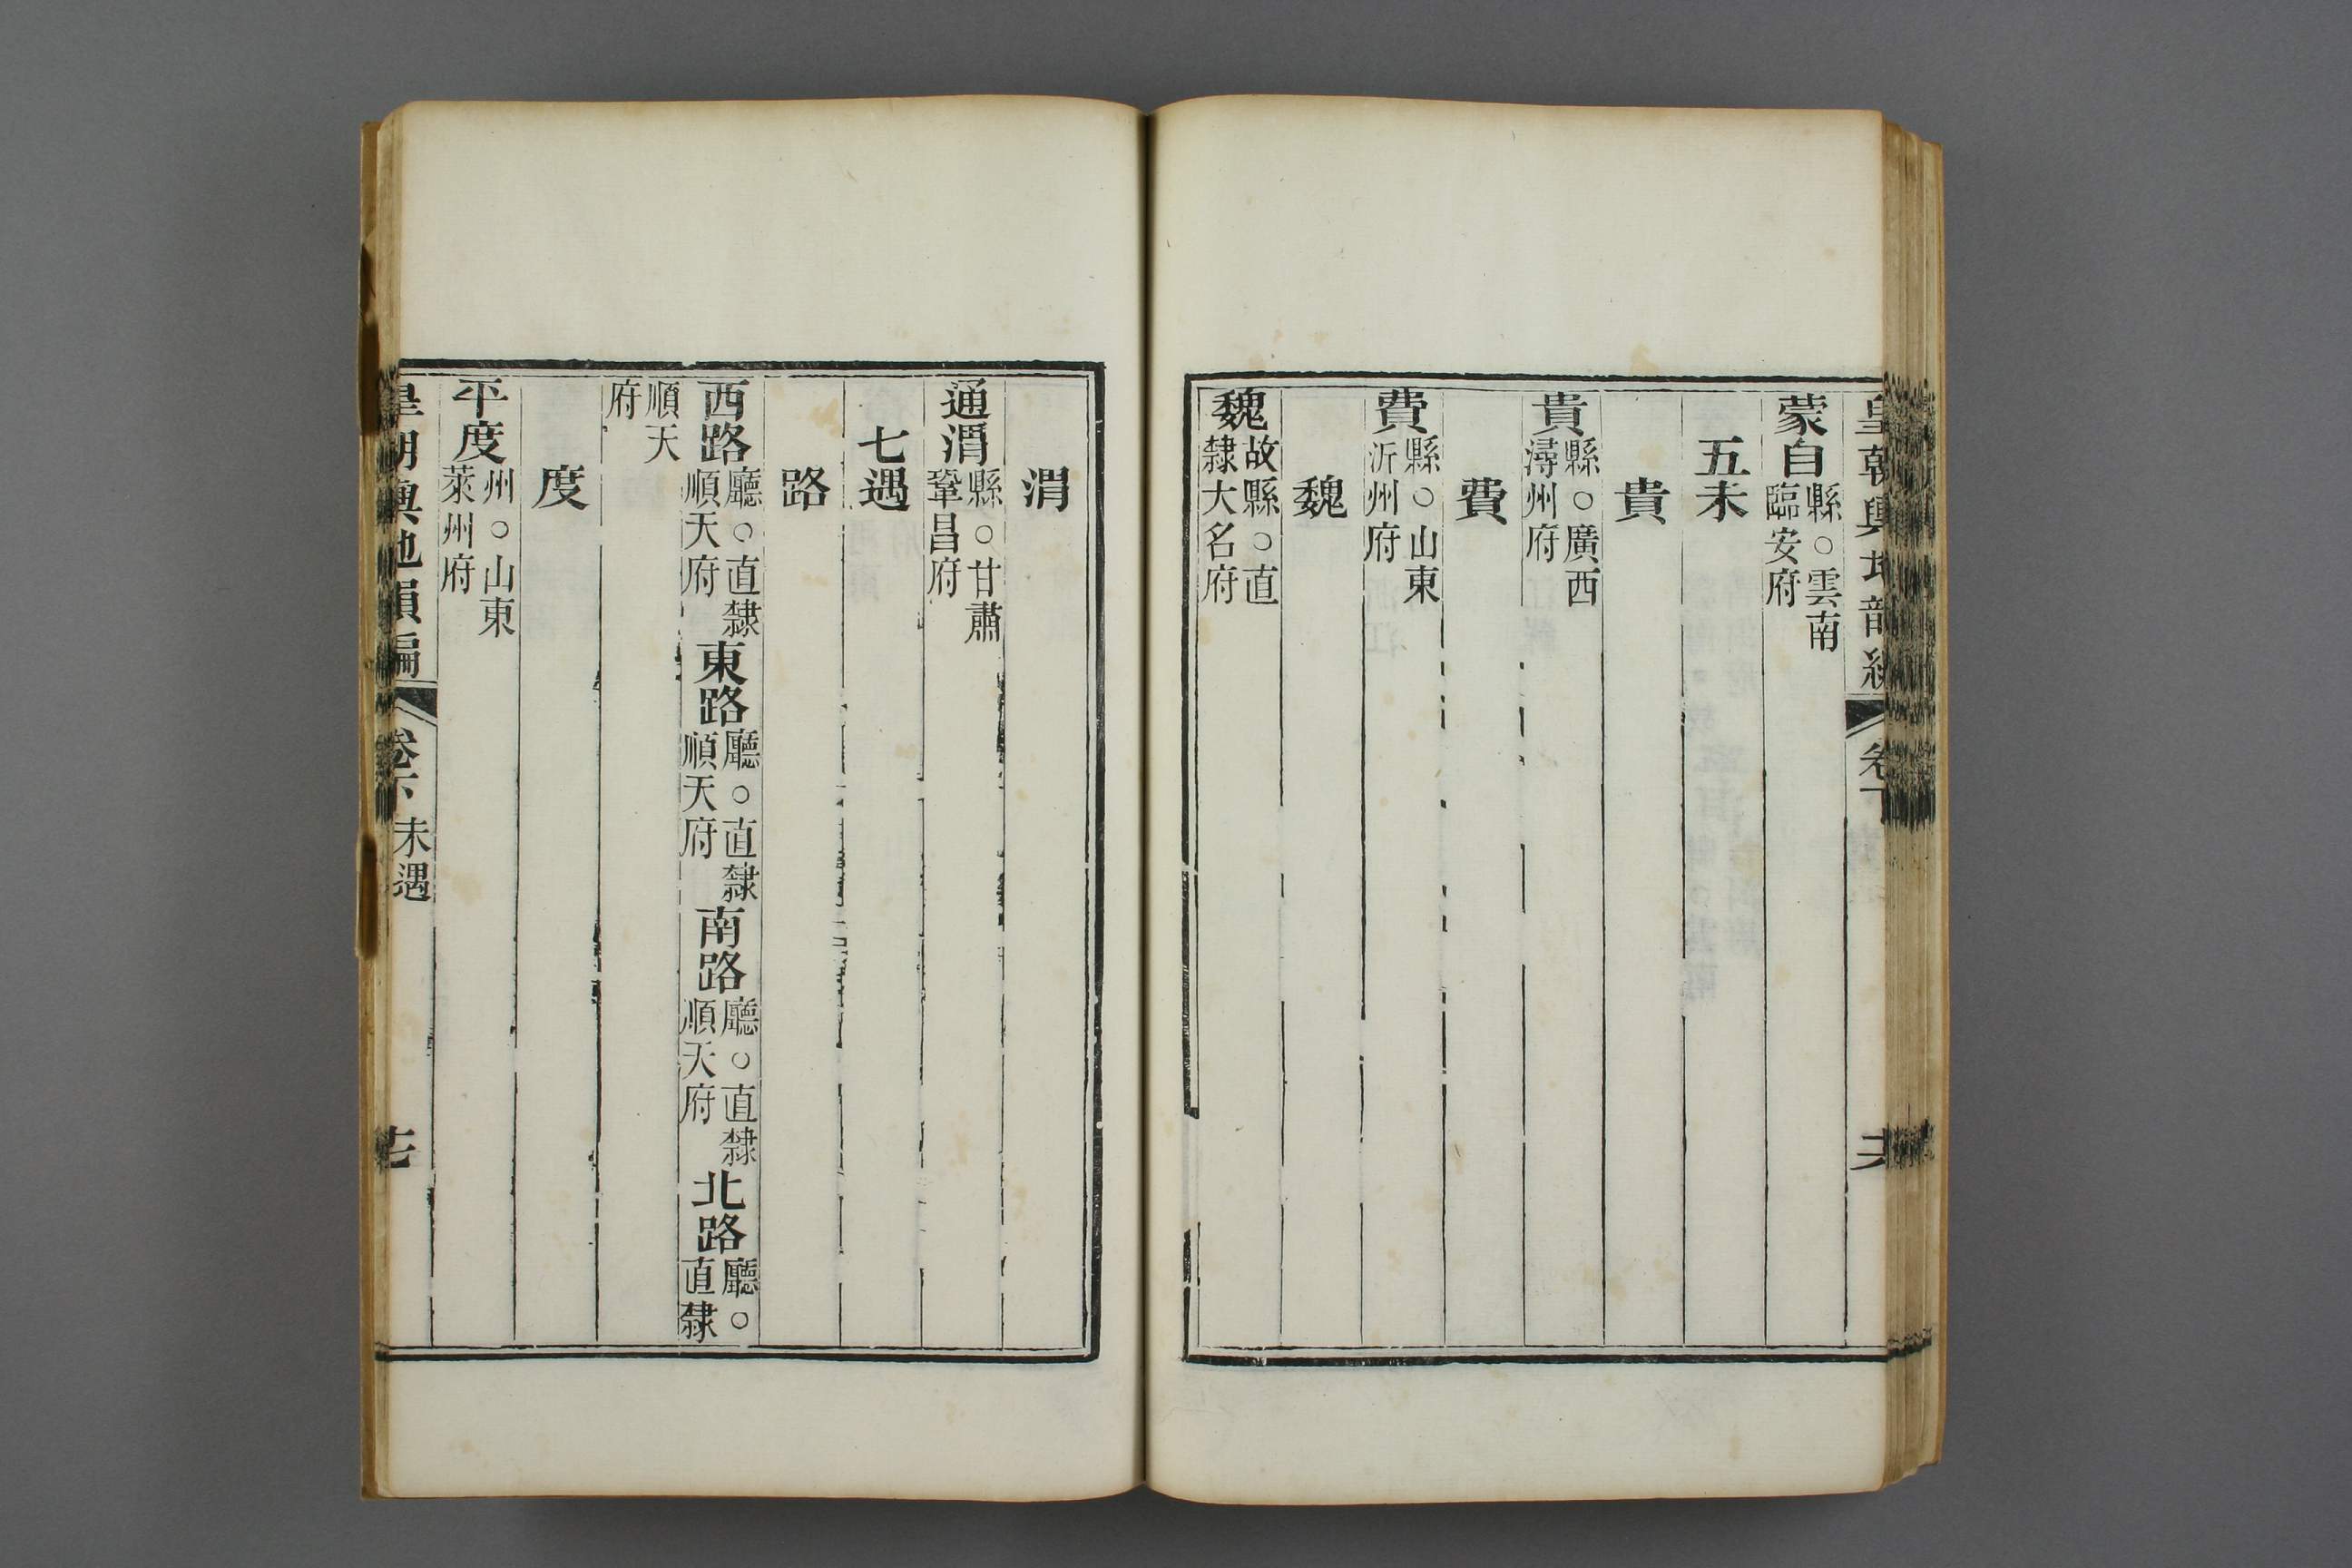 皇朝輿地韻編 卷下 六
蒙自縣○雲南臨安府
五未
貴
貴縣○廣西潯州府
費
費縣○山東沂州府
魏
魏故縣○直隸大名府
渭
通渭縣○甘肅鞏昌府
七遇
路
西路廳○直隸順天府東路廳○直隸順天府南路廳○直隸順天府北路廳○直隸
順天府
度
平度州○山東萊州府
皇朝輿地韻編 卷下 未遇 七